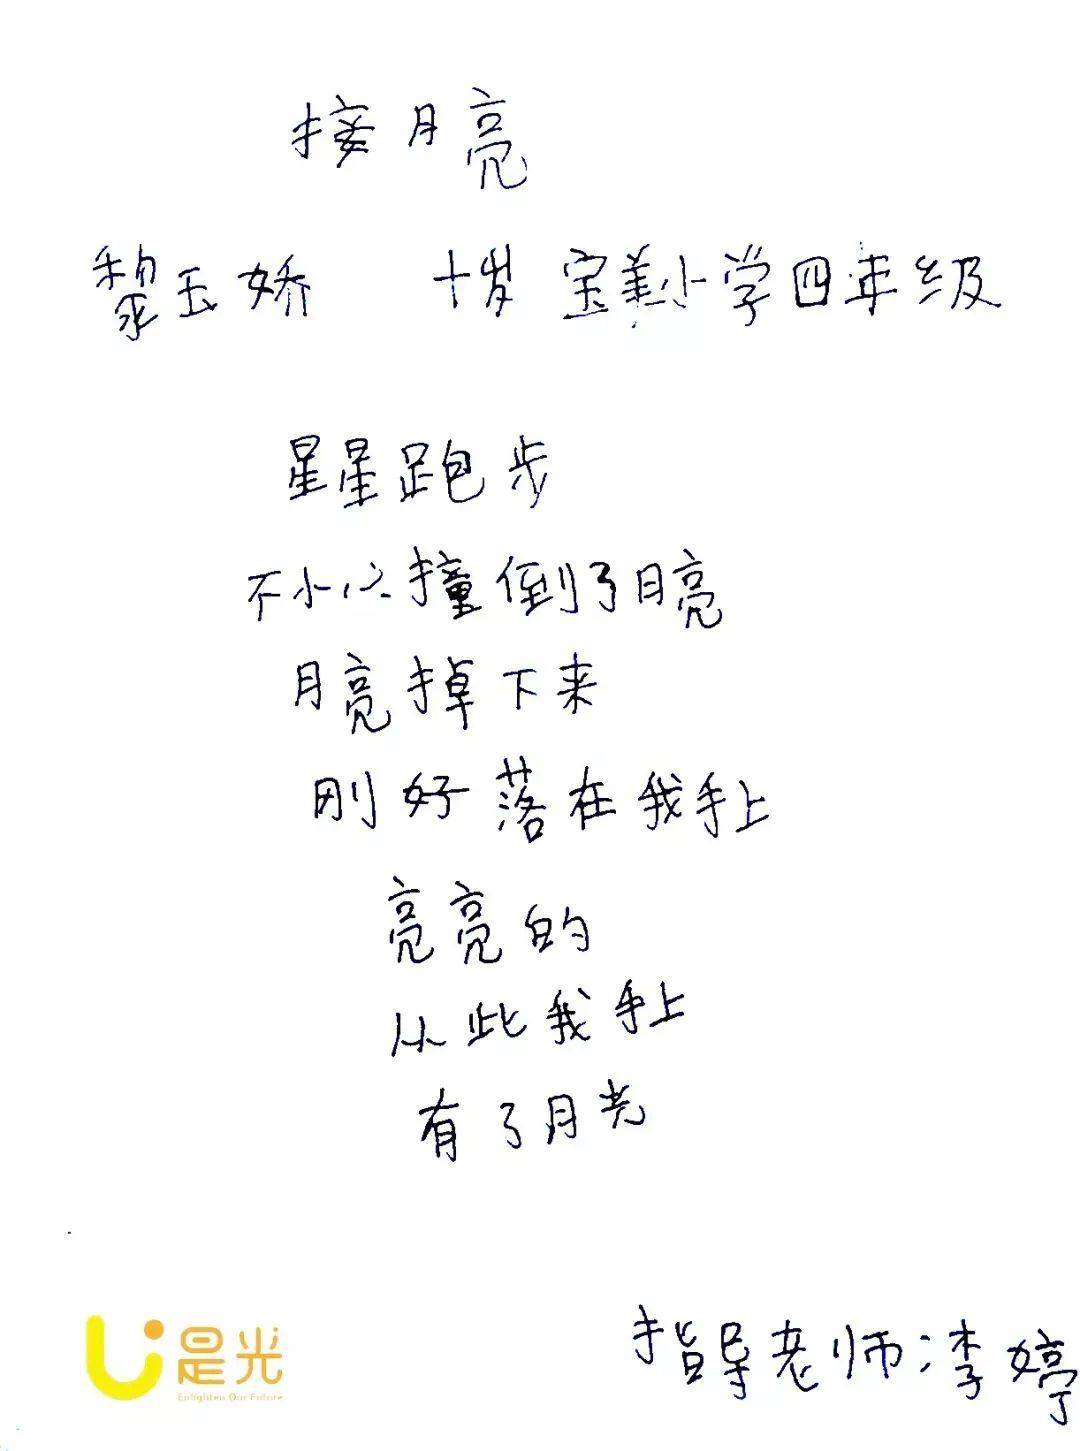 接月亮
黎玉娇 十岁 宝美小学四年级
星星跑步
不小心撞倒了月亮
月亮掉下来
刚好落在我手上
亮亮的
从此我手上
有了月光
指导老师:李婷
是光
Enlighten Our Future